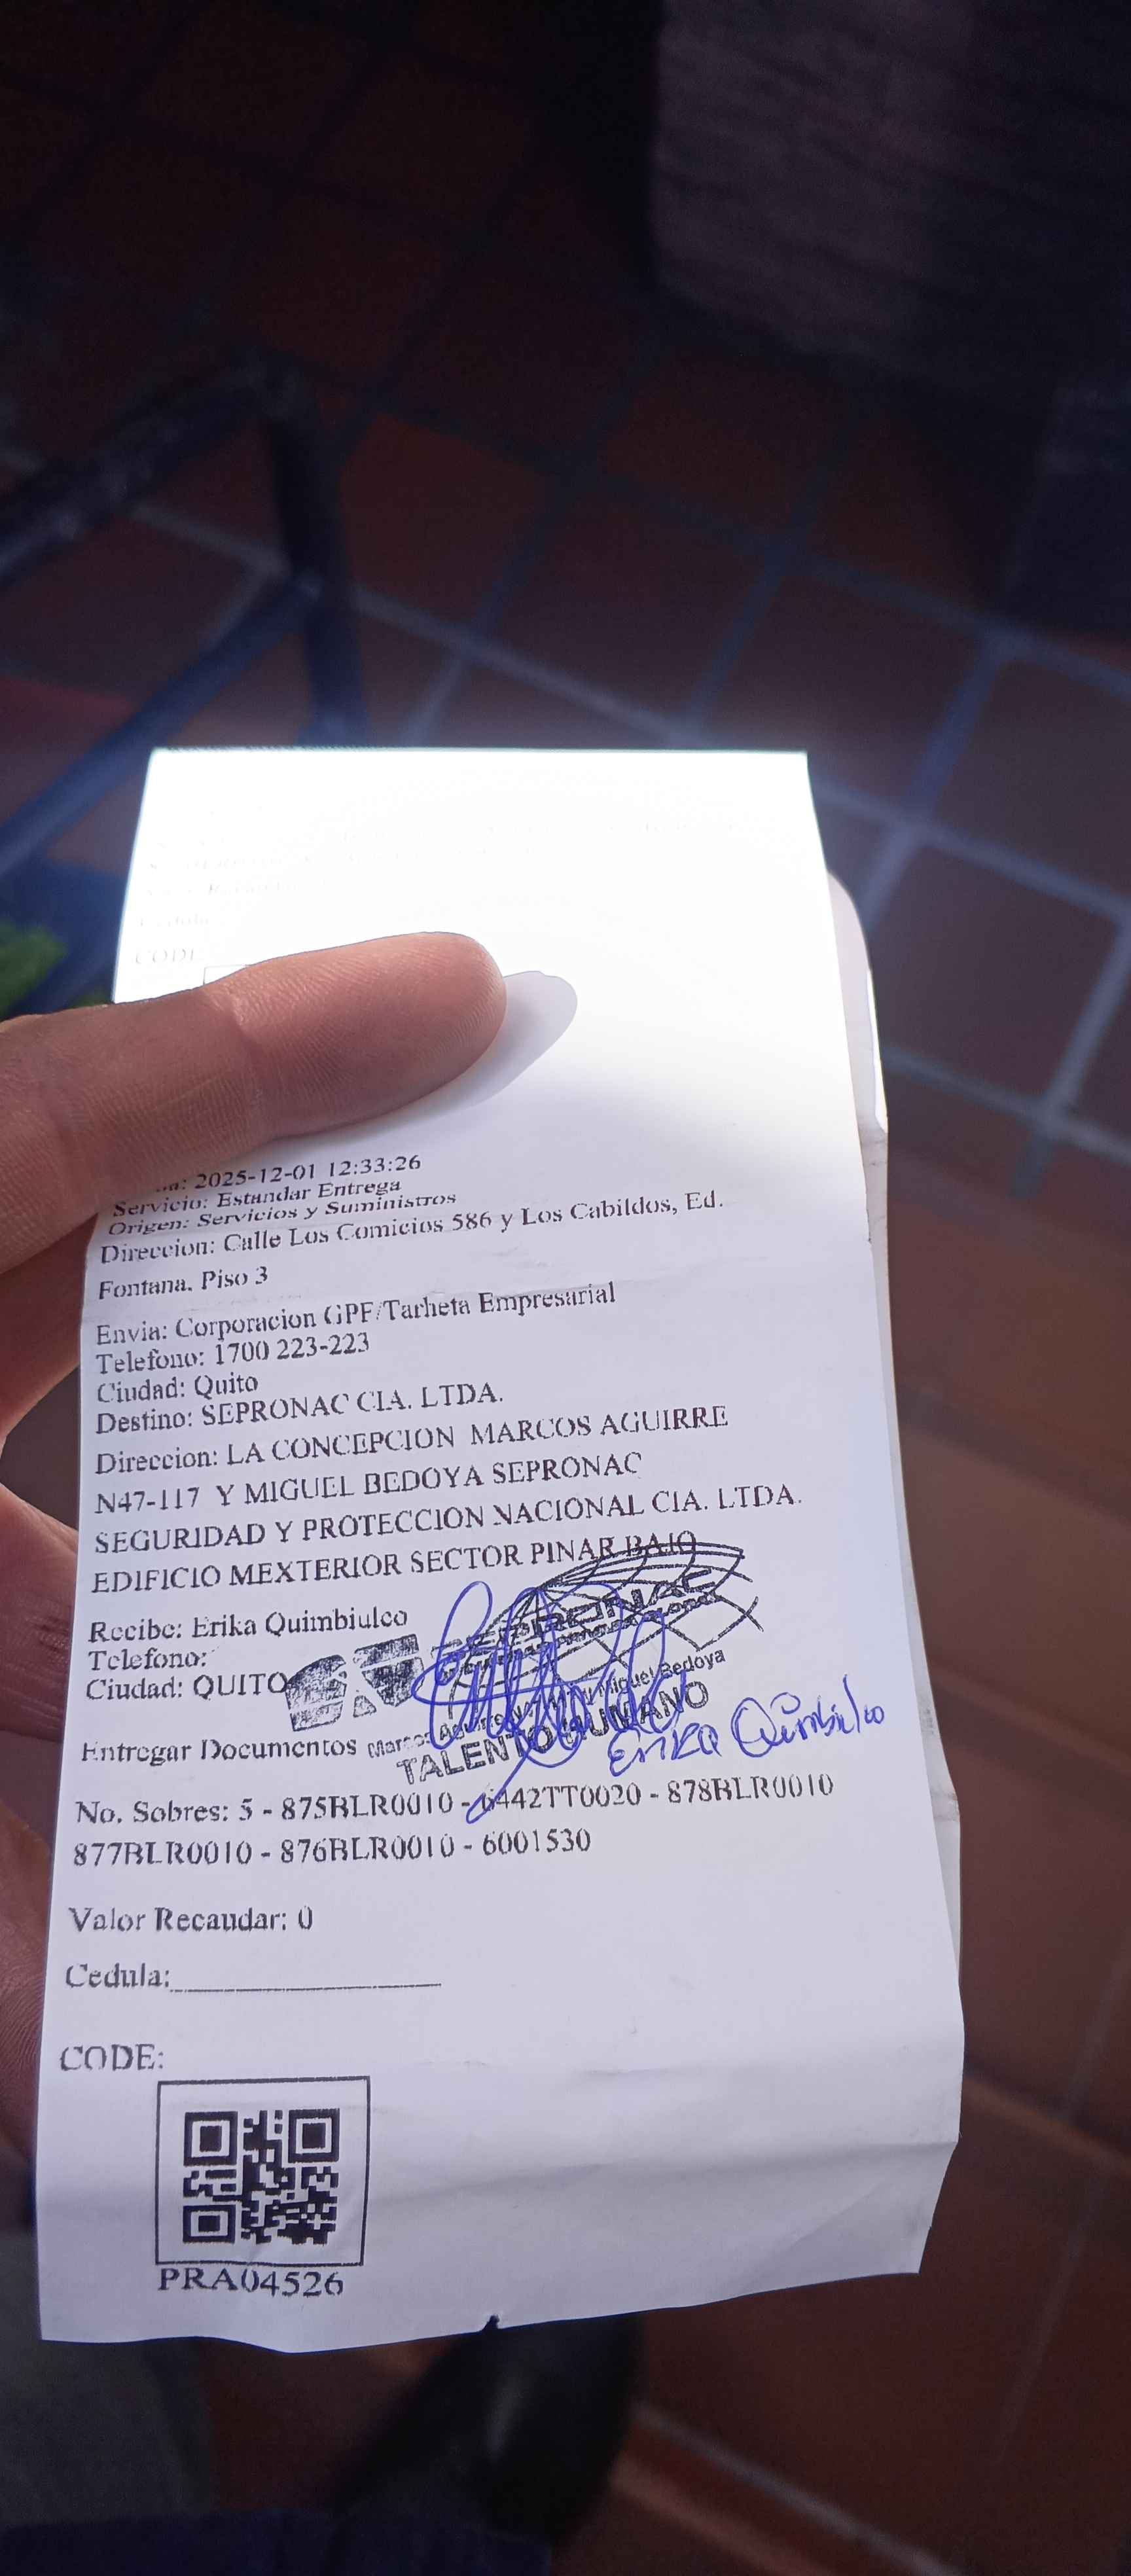 CODE:
2025-12-01 12:33:26
Servicio: Estandar Entrega
Origen: Servicios y Suministros
Direccion: Calle Los Comicios 586 y Los Cabildos, Ed.
Fontana. Piso 3
Envia: Corporacion GPF/Tarheta Empresarial
Telefono: 1700 223-223
Ciudad: Quito
Destino: SEPRONAC CIA. LTDA.
Direccion: LA CONCEPCION MARCOS AGUIRRE
N47-117 Y MIGUEL BEDOYA SEPRONAC
SEGURIDAD Y PROTECCION NACIONAL CIA. LTDA.
EDIFICIO MEXTERIOR SECTOR PINAR BAJO
Recibe: Erika Quimbiulco
Telefono:
Ciudad: QUITO
SEPRONAC
Miguel Bedoya
TALENTO HUMANO
Erika Quimbiulco
Entregar Documentos
No. Sobres: 5 - 875BLR0010 - 6442TT0020 - 878BLR0010
877BLR0010 - 876BLR0010 - 6001530
Valor Recaudar: 0
Cedula:
CODE:
PRA04526